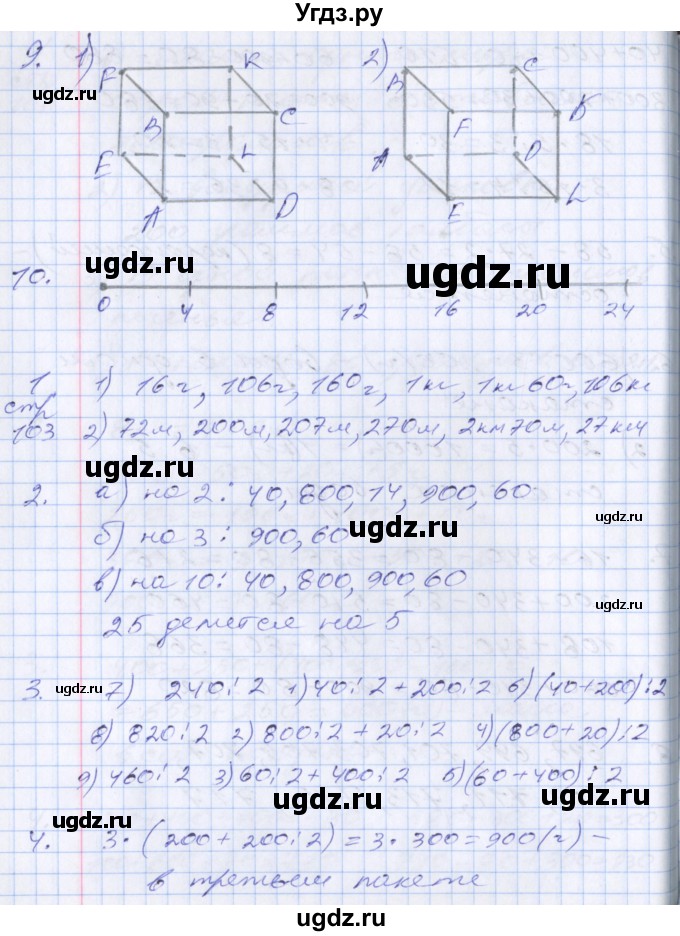 Угдз.ру
9. 1) 2)
F K B C
B C F K
E L A D
A D E L
ugdz.ru
ugdz.ru
ugdz.ru
10.
0 4 8 12 16 20 24
1. 1) 16 г, 106 г, 160 г, 1 кг, 1 кг 60 г, 106 кг
стр
103 2) 72 м, 200 м, 207 м, 270 м, 2 км 70 м, 27 км
ugdz.ru
2. а) на 2: 40, 800, 14, 900, 60
ugdz.ru
б) на 3: 900, 60
ugdz.ru
в) на 10: 40, 800, 900, 60
ugdz.ru
25 делется на 5
3. ugdz.ru 7) 240:2 1) 40:2+200:2 6) (40+200):2
ugdz.ru
8) 820:2 2) 800:2+20:2 4) (800+20):2
9) 460:2 3) 60:2+400:2 5) (60+400):2
ugdz.ru
ugdz.ru
ugdz.ru
4. 3·(200+200:2)=3·300=900(г) –
в третьем пакете
ugdz.ru